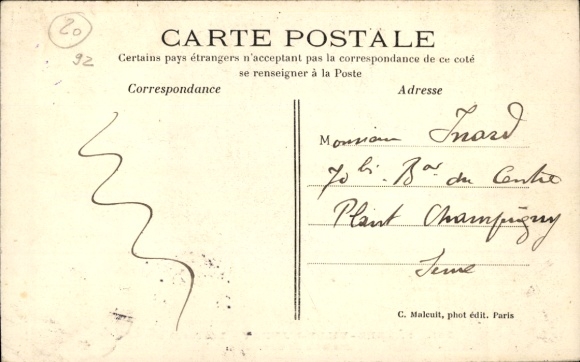 20
92
CARTE POSTALE
Certains pays étrangers n'acceptant pas la correspondance de ce coté
se renseigner à la Poste
Correspondance
Adresse
Monsieur Inard
70 bis Bar du Centre
Plant Champigny
Seine
C. Malcuit, phot édit. Paris